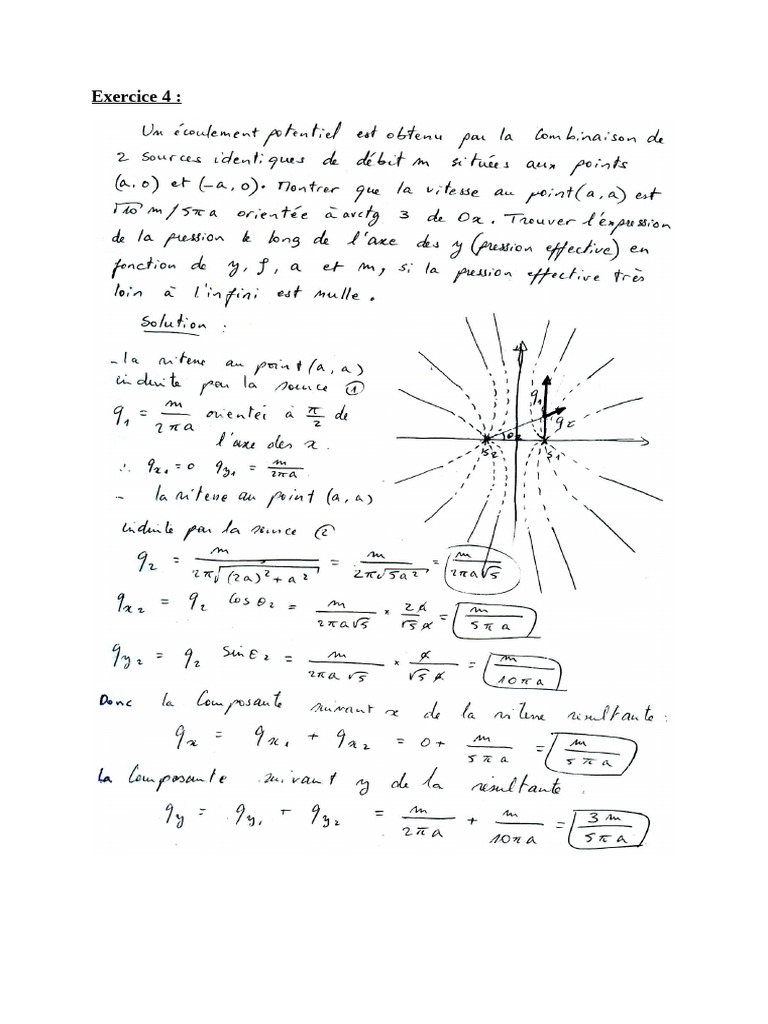 Exercice 4 :
Un écoulement potentiel est obtenu par la Combinaison de
2 sources identiques de débit m situées aux points
(a, o) et (-a, o). Montrer que la vitesse au point (a, a) est
√10 m / 5πa orientée à arctg 3 de Ox. Trouver l'expression
de la pression le long de l'axe des y (pression effective) en
fonction de y, ρ, a et m, si la pression effective très
loin à l'infini est nulle.
Solution :
- la vitesse au point (a, a)
induite par la source ①
q₁ = m / 2πa orientée à π/2 de
l'axe des x.
∴ qx₁ = 0 qy₁ = m / 2πa
- la vitesse au point (a, a)
induite par la source ②
q₁
q₂
θ₂
S₂
S₁
q₂ = m / 2π√((2a)² + a²) = m / 2π√5a² = m / 2πa√5
qx₂ = q₂ cos θ₂ = m / 2πa√5 × 2a / √5 a = m / 5πa
qy₂ = q₂ sin θ₂ = m / 2πa√5 × a / √5 a = m / 10πa
Donc la Composante suivant x de la vitesse résultante :
qx = qx₁ + qx₂ = 0 + m / 5πa = m / 5πa
La Composante suivant y de la résultante :
qy = qy₁ + qy₂ = m / 2πa + m / 10πa = 3m / 5πa